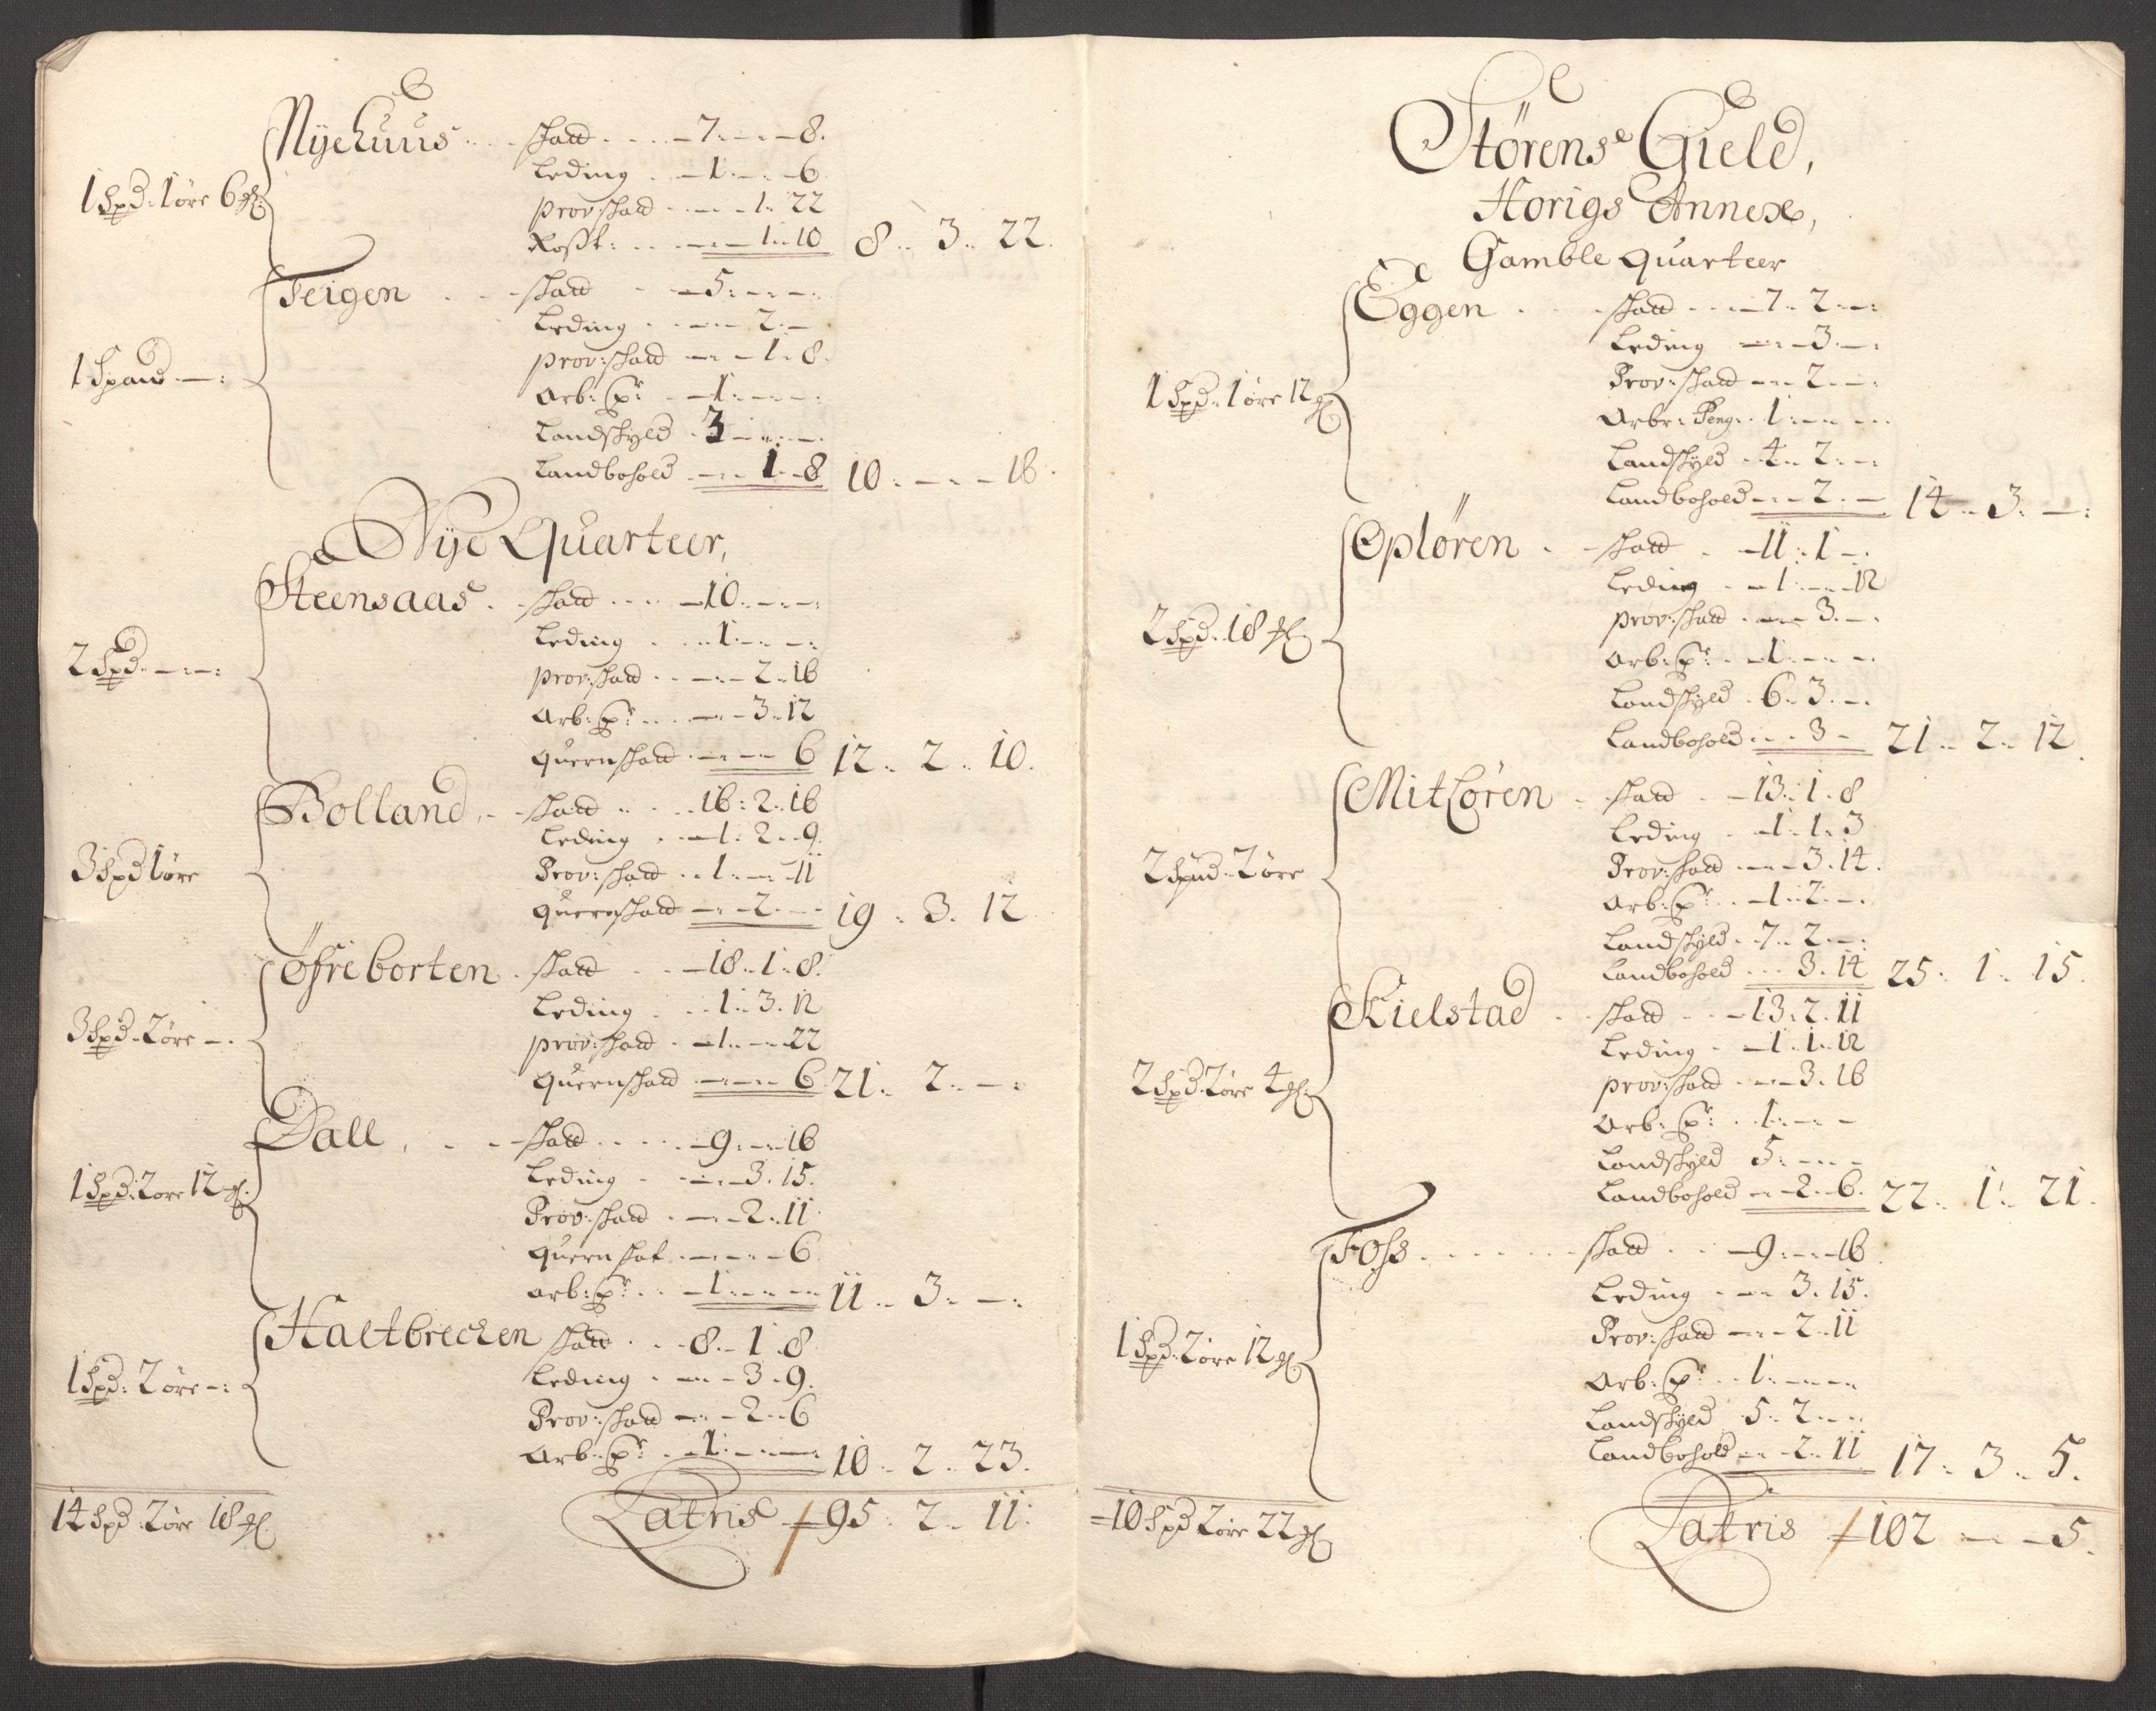 Nyehuus . . . skatt . . . . – 7 . – . – 8 .
Leding . – 1 . – . – 6
1 Spd: 1 øre 6 gl:
prov: skatt . – . – 1 . 22
Rosst: . . . – . – 1 . 10 8 .. 3 .. 22 .
Teigen . . . skatt . – 5 . – . – .
Leding . . – . – 2 . –
1 Spand – :
prov: skatt – . – 1 . 8 .
Arb: P: . – 1 . – . – .
Landskyld . 3 – . – . – .
Landbohold – . – 1 . – 8 10 . – . – 18 .
Nye Quarteer,
Steensaas . . skatt . . . – 10 . – . – :
Leding . . – 1 . – . – :
2 Spd . – . – :
prov: skatt . . – . – 2 . 16
Arb: P: . . . – . – 3 . 12
quernskatt . – . – . – 6 12 .. 2 .. 10 .
Bolland . . skatt . . . 16 : 2 . 16
Leding . . – 1 . 2 . 9 .
3 Spd 1 øre
Prov: skatt . . 1 . – . – 11
quernskatt – . – 2 . – . 19 . 3 . 12
Øfreborten . skatt . . – 18 . 1 . 8 .
Leding . . . 1 . 3 . 12
3 Spd . 2 øre – .
prov: skatt . – 1 . – . – 22
quernskatt . – . – . – 6 21 . 2 . – :
Dall . . . skatt . . . . – 9 . – . – 16
Leding . . – . – 3 . 15 .
1 Spd: 2 øre 12 gl.
Prov: skatt . – . – 2 . 11
quern skat . – . – . – 6
arb: P: . . – 1 . – . – 11 .. 3 . – :
Haltbrecken skatt . . . 8 . – 1 . 8
Leding . – . – 3 . 9 .
1 Spd: 2 øre – :
Prov: skatt – . – 2 . 6
Arb: P: . – 1 . – . – 10 .. 2 .. 23 .
14 Spd . 2 øre 18 gl.
Latris – 95 . 2 .. 11 .
Størens Gield,
Horigs Annex,
Gamble quarteer
Eggen . . . skatt . . . – 7 . 2 . – :
Leding – . – 3 . – :
1 Spd . 1 øre 12 gl
Prov: skatt – . – 2 . – :
Arbr: Peng . . 1 . – . – .
Landskyld . 4 . 2 . – :
Landbohold – . – 2 . – 14 .. 3 . – :
Opløren . . skatt . . – 11 . 1 – .
Leding . – 1 . – . – 12
2 Spd . 18 gl
prov: skatt . – . – 3 . – .
Arb: P: . – 1 . – . – .
Landskyld . 6 . 3 . – .
Landbohold . . . 3 – 21 .. 2 .. 12 .
Mitløren . skatt . . – 13 . 1 . 8
Leding . . – 1 . 1 . 3
2 Spnd . 2 øre
Prov: skatt . – . – 3 . 14 .
Arb: P: . . – 1 . 2 . – .
Landskyld . 7 . 2 . – :
Landbohold . . . 3 . 14 25 . 1 . 15 .
Kielstad . . skatt . . – 13 . 2 . 11
Leding . – 1 . 1 . 12
2 Spd . 2 øre 4 gl:
prov: skatt . – . – 3 . 16
Arb: P: . . 1 . – . –
Landskyld 5 . – . – .
Landbohold – . – 2 . 6 . 22 .. 1 . 21 .
Foss . . . . . . skatt . . – 9 . – . – 16
Leding . – . – 3 . 15 .
1 Spd: 2 øre 12 gl
Prov: skatt – . – 2 . 11
Arb: P: . . 1 . – . – .
Landskyld . 5 . 2 . – .
Landbohold – . – 2 . 11 17 . 3 .. 5 .
10 Spd 2 øre 22 gl
Latris – 102 – . – 5 .